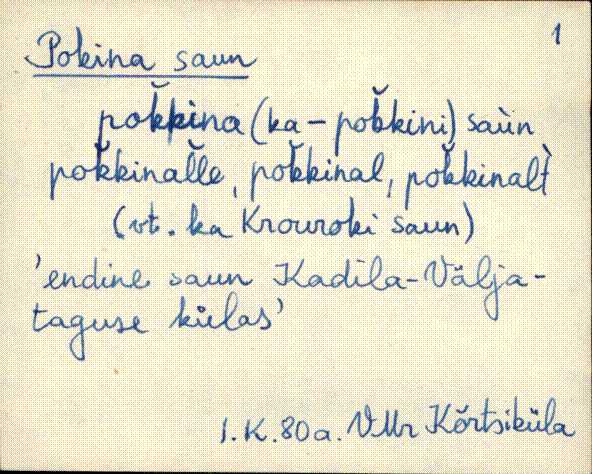 1
Pokina saun
pok̆kina (ka – pok̆kini) saùn
pok̆kinal̆le, pok̆kinal, pok̆kinalt̀
(vt. ka Krouroki saun)
'endine saun Kadila-Välja-
taguse külas'
I. K. 80 a. VMr Kõrtsiküla